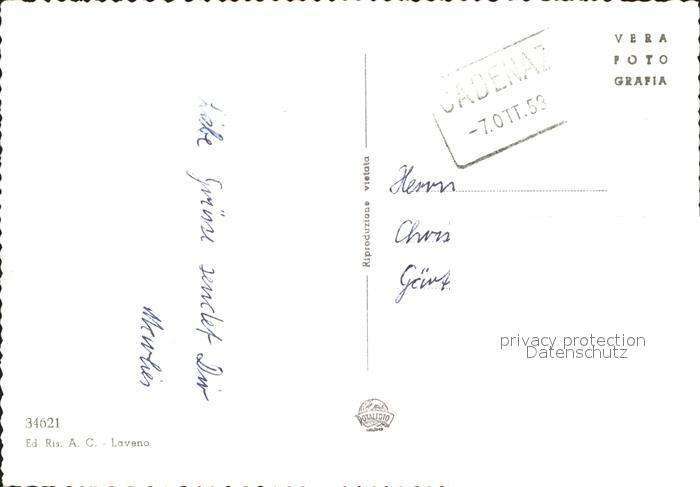 VERA
FOTO
GRAFIA
CADENAZ
-7.OTT.53
Liebe Grüsse sendet Dir
Riproduzione vietata
Herrn
Chris
privacy protection
Datenschutz
34621
Ed. Ris. A. C. - Laveno